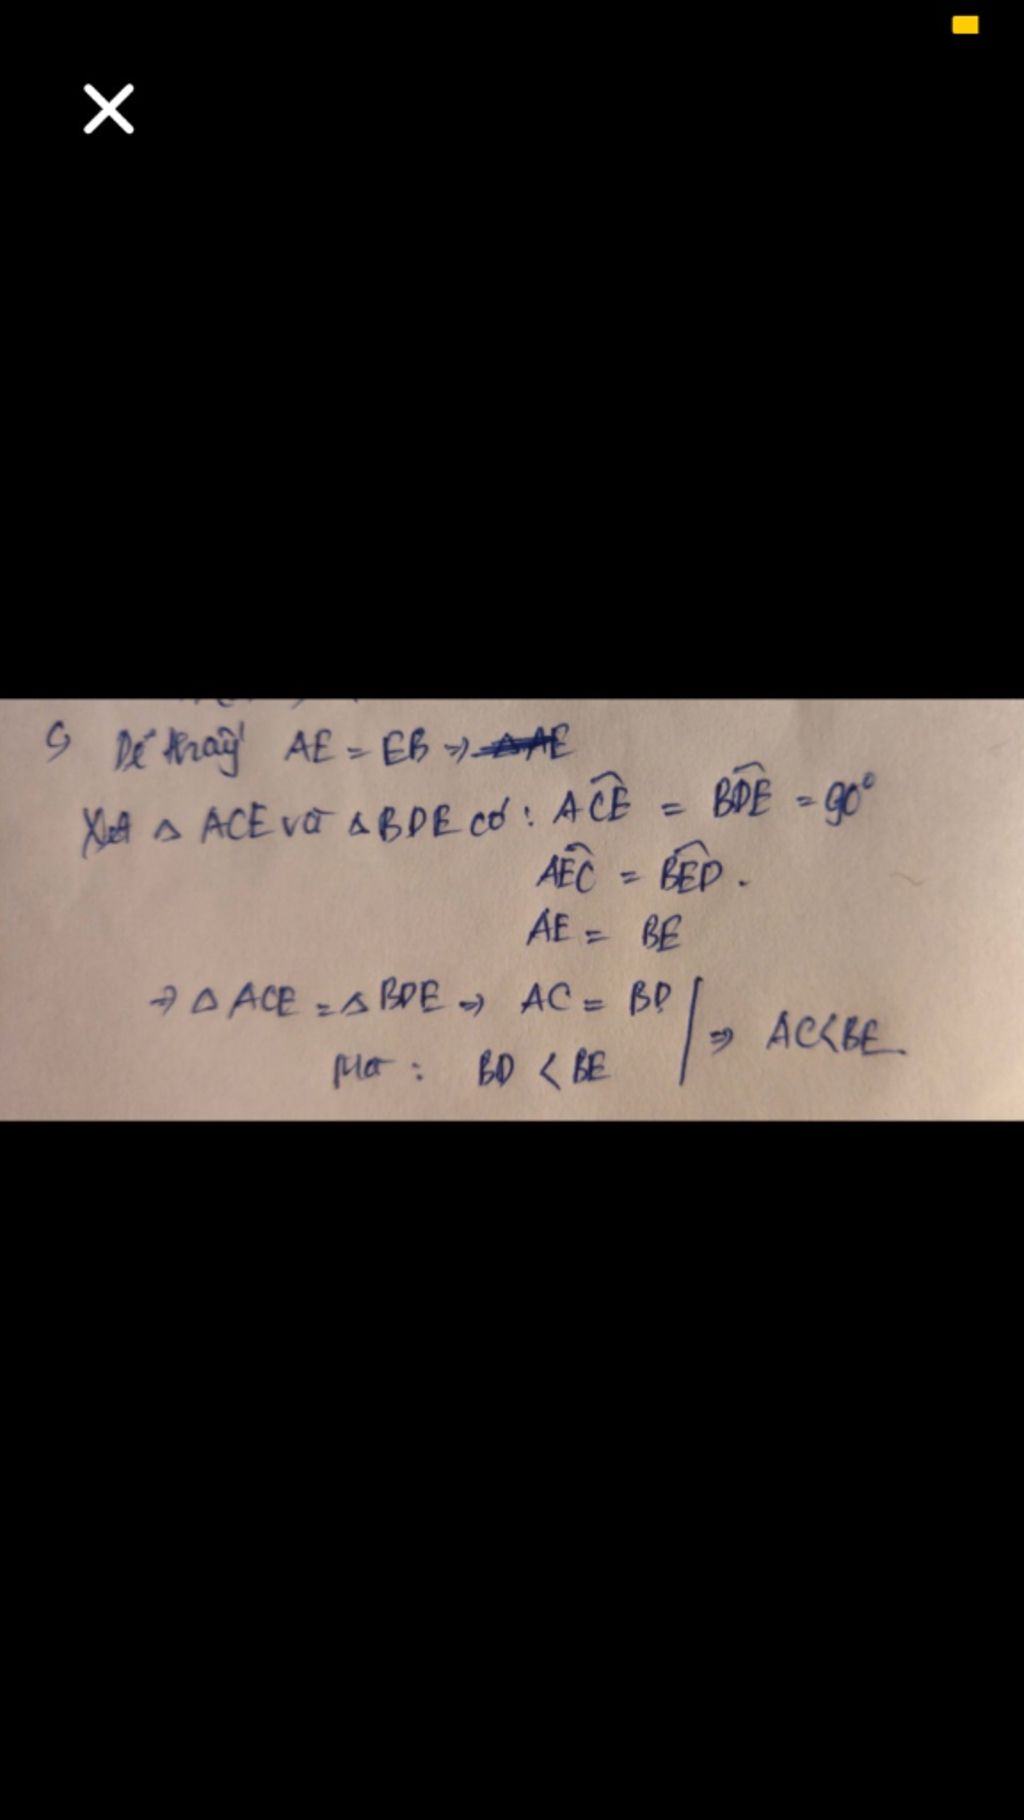 c, Dễ thấy AE = EB ⇒ ΔAE
Xét Δ ACE và Δ BDE có : ACE = BDE = 90°
AEC = BED .
AE = BE
⇒ Δ ACE = Δ BDE ⇒ AC = BD
⇒ AC < BE.
Mà : BD < BE